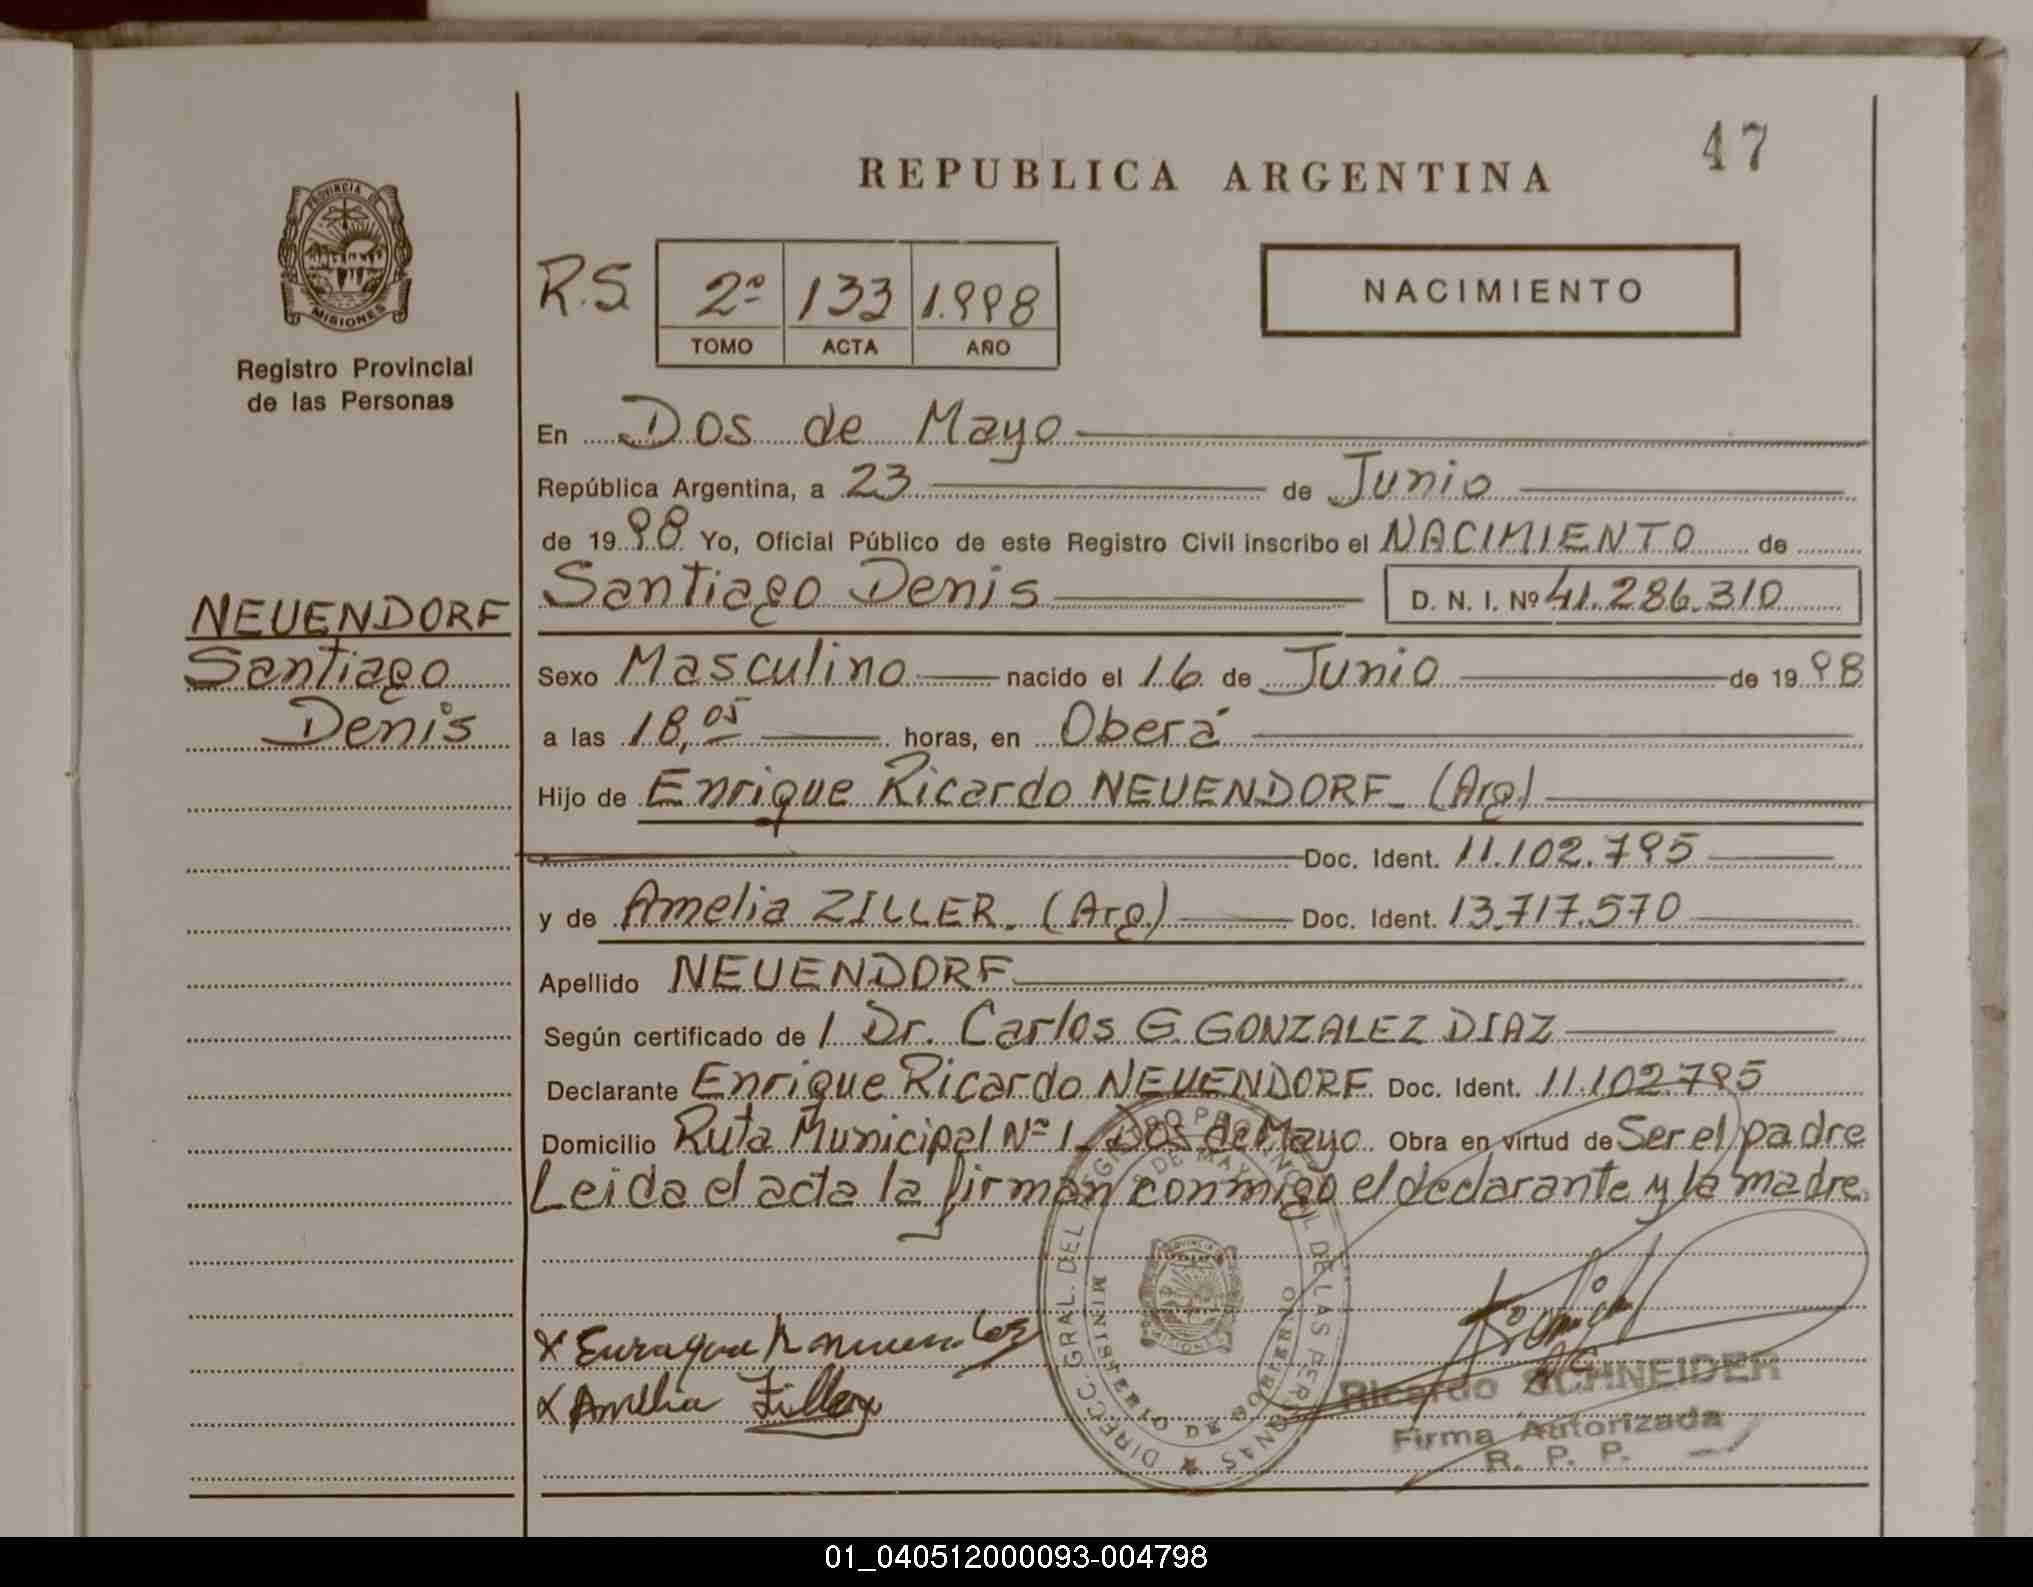 47
REPUBLICA ARGENTINA
PROVINCIA DE
MISIONES
Registro Provincial
de las Personas
R.S. 2º 133 1.998
TOMO ACTA AÑO
NACIMIENTO
En Dos de Mayo
República Argentina, a 23 de Junio
de 1998 Yo, Oficial Público de este Registro Civil inscribo el NACIMIENTO de
Santiago Denis D. N. I. Nº 41.286.310
NEUENDORF
Santiago
Denis
Sexo Masculino nacido el 16 de Junio de 1998
a las 18,05 horas, en Oberá
Hijo de Enrique Ricardo NEUENDORF_ (Arg)
Doc. Ident. 11.102.795
y de Amelia ZILLER_ (Arg.) Doc. Ident. 13.717.570
Apellido NEUENDORF
Según certificado de l Dr. Carlos G. GONZALEZ DIAZ
Declarante Enrique Ricardo NEUENDORF Doc. Ident. 11.102.795
Domicilio Ruta Municipal Nº 1_ Dos de Mayo Obra en virtud de Ser el padre
Leida el acta la firman conmigo el declarante y la madre.
DIREC. GRAL. DEL REGISTRO PROVINCIAL DE LAS PERSONAS
DE MAYO
MINISTERIO DE GOBIERNO
PROVINCIA
MISIONES
x Amelia Ziller
Ricardo SCHNEIDER
Firma Autorizada
R. P. P.
01_040512000093-004798